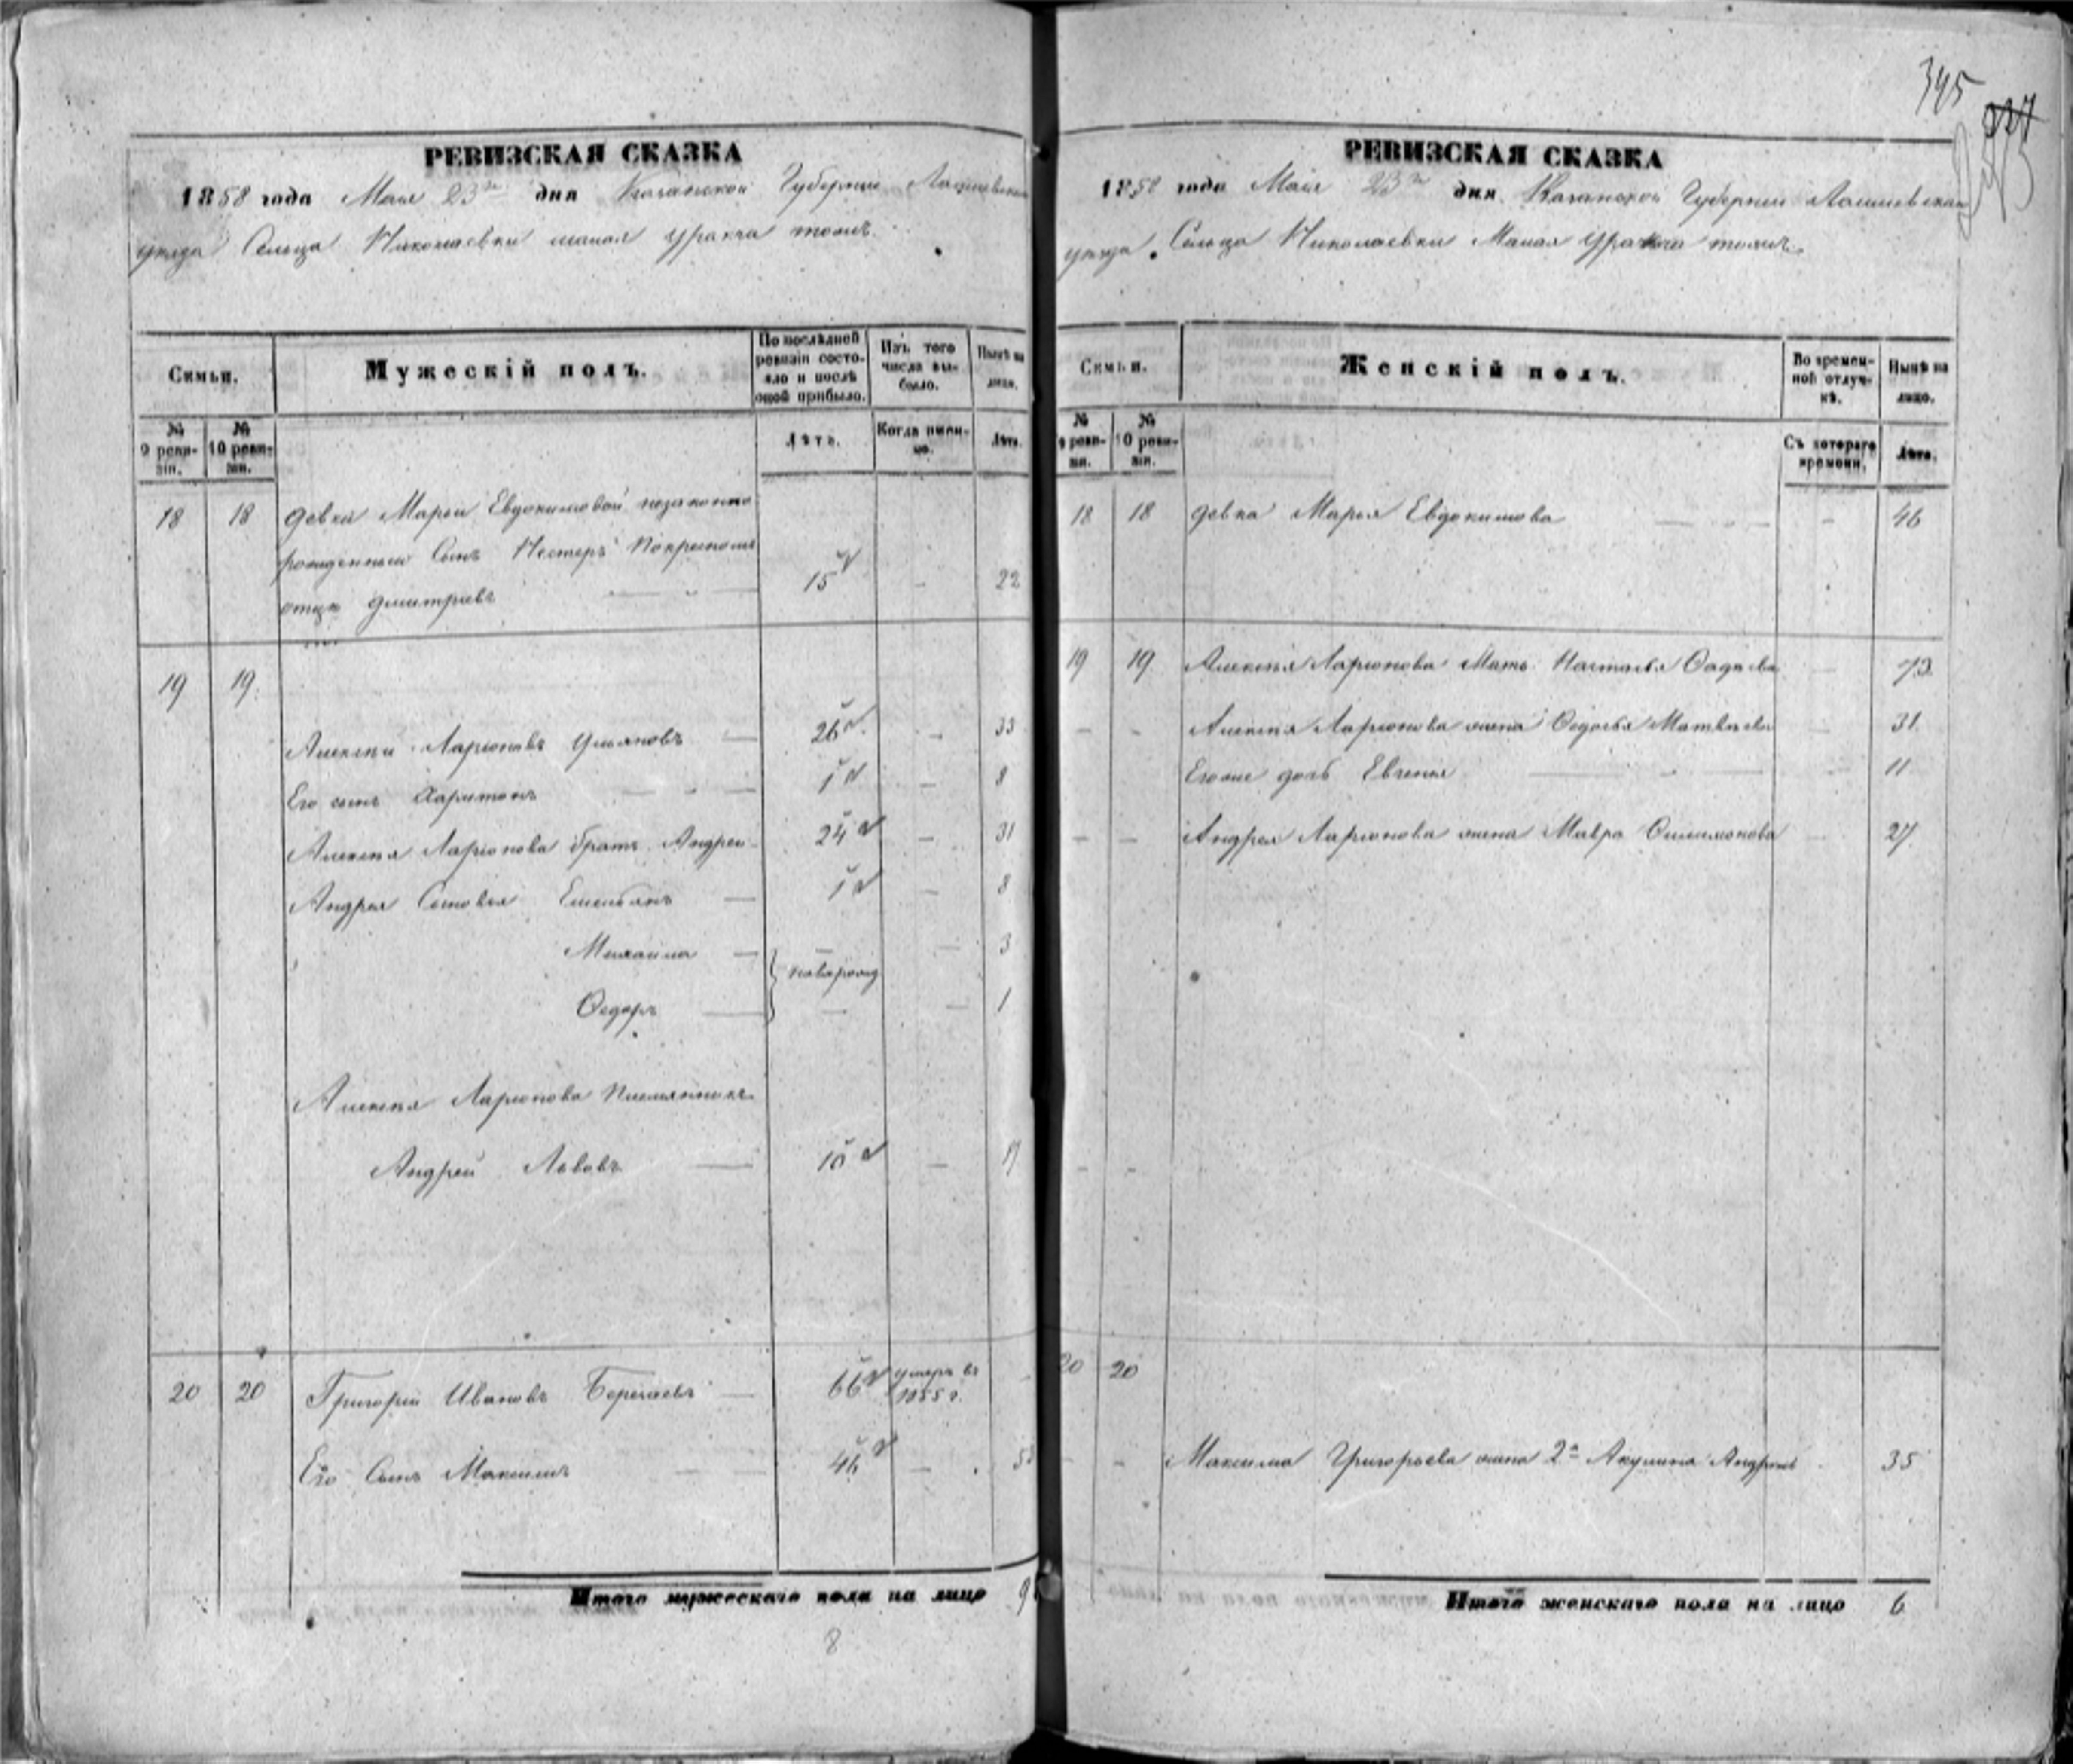 РЕВИЗСКАЯ СКАЗКА
1858 года Мая 23го дня Казанской Губернии Лаишевскаго
уезда Сельца Николаевки малая Уракча тожъ
Семьи.
Мужескій полъ.
По послѣдней ревизіи состояло и послѣ оной прибыло.
Изъ того числа выбыло.
Нынѣ на лицо.
№ 9 ревизіи.
№ 10 ревизіи.
Лѣта.
Когда именно.
Лѣта.
18 18 девки Марьи Евдокимовой незаконно
рожденный Сынъ Нестеръ по крестному
отцу Дмитріевъ 15 22
19 19
Алексѣй Ларіоновъ Ульяновъ 26 33
Его сынъ Харитонъ 1 8
Алексѣя Ларіонова братъ Андрей 24 31
Андрея Сыновья Емельянъ 1 8
Михаила 3
новорожд
Ѳедоръ 1
Алексѣя Ларіонова племянникъ
Андрей Львовъ 10 17
20 20 Григорій Ивановъ 66 умеръ въ 1855 г.
Его Сынъ Максимъ 46
Итого мужескаго пола на лицо 9
8
345
РЕВИЗСКАЯ СКАЗКА
1858 года Мая 23го дня Казанской Губернии Лаишевскаго
уезда Сельца Николаевки Малая Уракча тожъ
Семьи.
Женскій полъ.
Во временной отлучкѣ.
Нынѣ на лицо.
№ 9 ревизіи.
№ 10 ревизіи.
Съ котораго времени.
Лѣта.
18 18 девка Марья Евдокимова 46
19 19 Алексѣя Ларіонова Мать Настасья 73
Алексѣя Ларіонова жена Ѳедосья Матвѣева 31
Его же дочь Евгенія 11
Андрея Ларіонова жена Мавра Филимонова 27
20 20
Максима Григорьева жена 2я Акулина 35
Итого женскаго пола на лицо 6